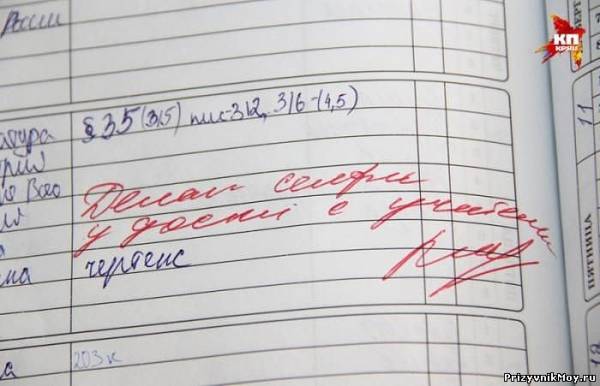 России
КП
атура § 35 (3,5) пис-312, 316-(4,5)
Делал селфи
у доски с учителем
чертеж
203 к
11
ПЯТНИЦА
PrizyvnikMoy.ru